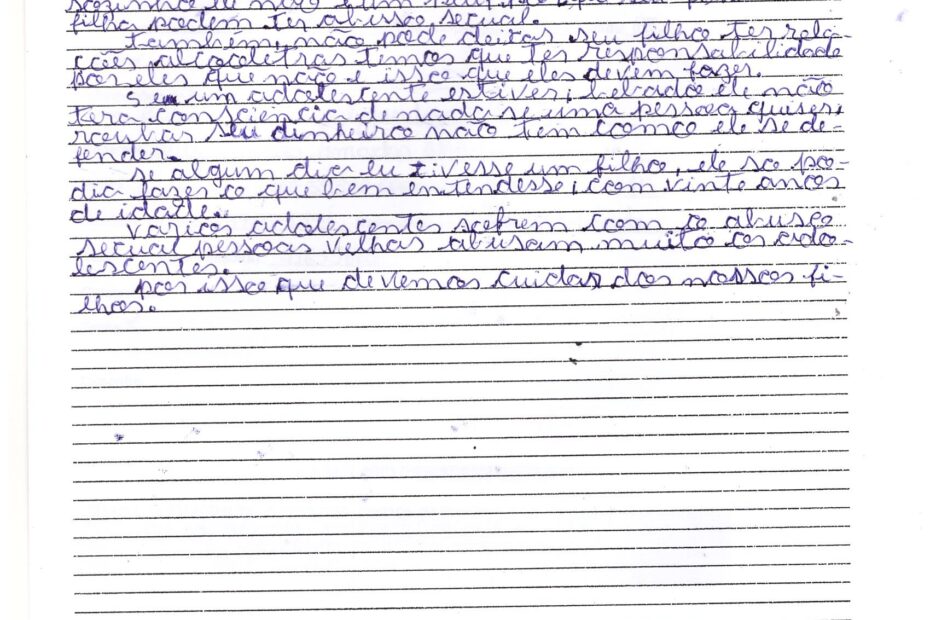 sozinho ele não é um
filha podem ter abusso secual.
também, não pode deixas seu filho ter rela-
ções alcocletras temos que ter responsabilidade
por eles que não e isso que eles devem fazer.
Se um adolescente estiver, bebado ele não
tera consciência de nada se uma pessoa quiser,
roubar seu dinheiro não tem como ele se de-
fender.
se algum dia eu tivesse um filho, ele so po-
dia fazer o que bem entendesse, com vinte anos
de idade.
varios adolescentes sofrem com o abuso
secual pessoas velhas abusam muito os ado-
lescentes.
por isso que devemos cuidar dos nossos fi-
lhos.